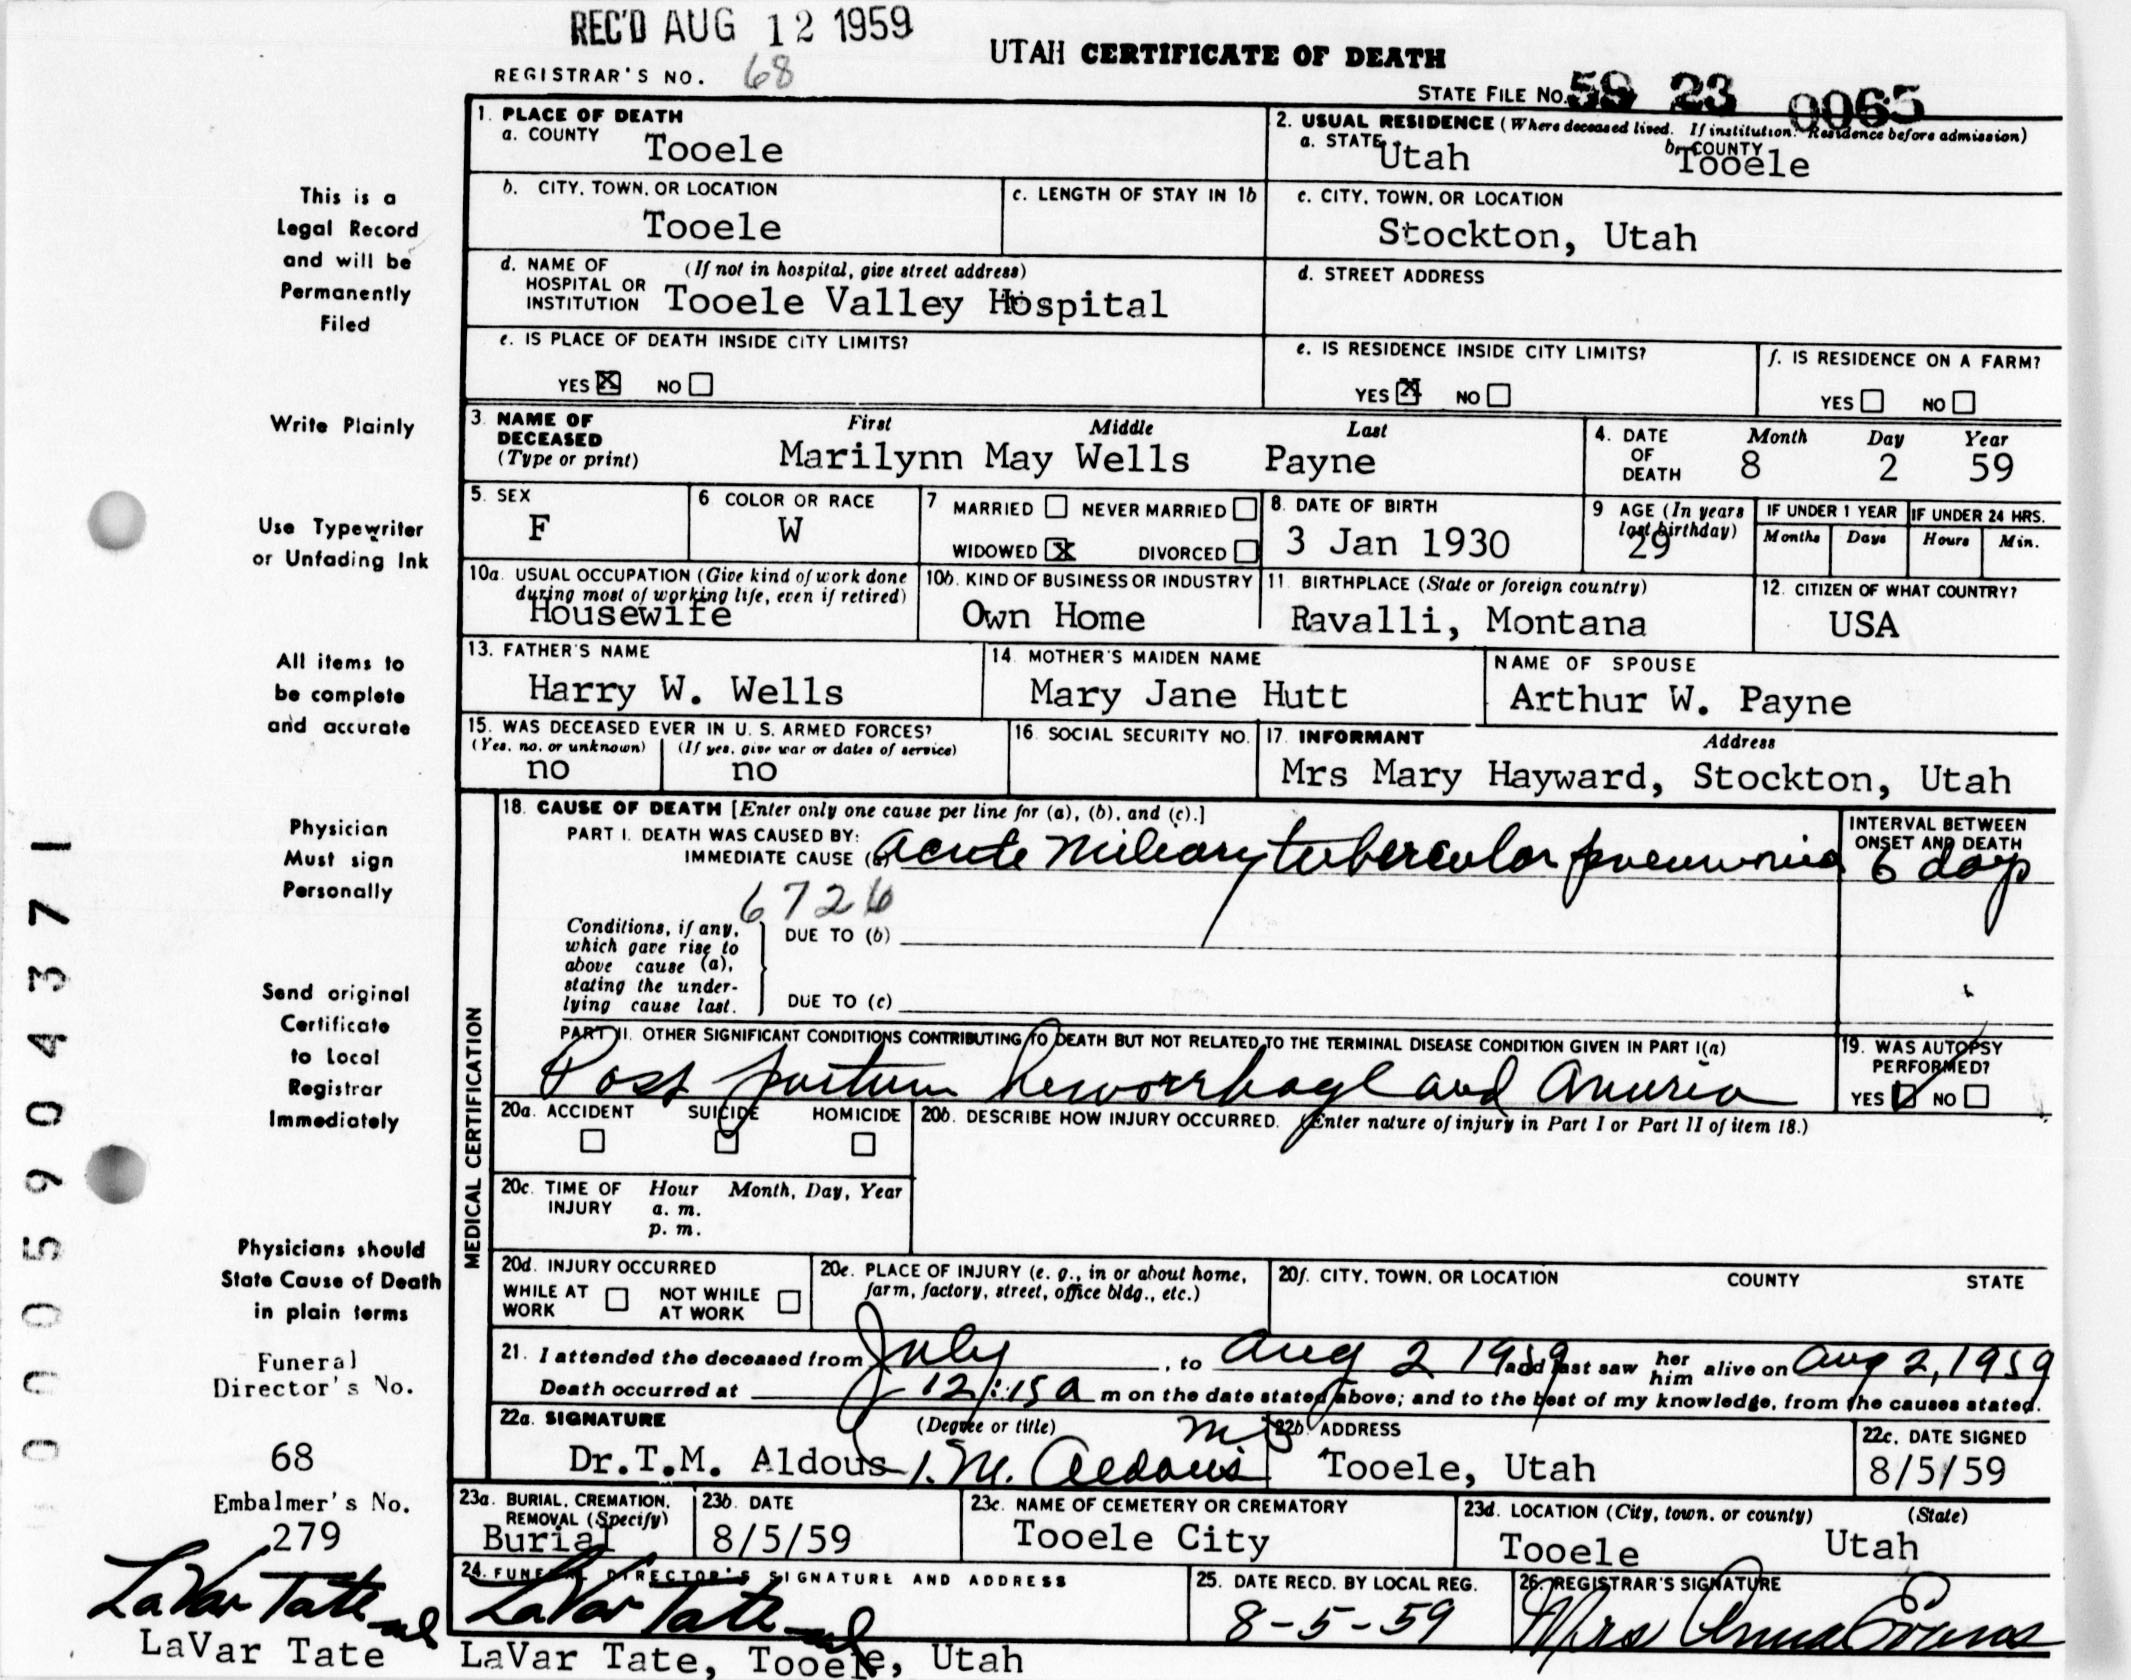 REC'D AUG 12 1959
UTAH CERTIFICATE OF DEATH
REGISTRAR'S NO. 68
STATE FILE NO. 59 23 0065
This is a
Legal Record
and will be
Permanently
Filed
Write Plainly
Use Typewriter
or Unfading Ink
All items to
be complete
and accurate
Physician
Must sign
Personally
Send original
Certificate
to Local
Registrar
Immediately
Physicians should
State Cause of Death
in plain terms
Funeral
Director's No.
68
Embalmer's No.
279
LaVar Tate
LaVar Tate
0005904371
1. PLACE OF DEATH
a. COUNTY Tooele
2. USUAL RESIDENCE (Where deceased lived. If institution: Residence before admission)
a. STATE Utah b. COUNTY Tooele
b. CITY, TOWN, OR LOCATION
Tooele
c. LENGTH OF STAY IN 1b
c. CITY, TOWN, OR LOCATION
Stockton, Utah
d. NAME OF HOSPITAL OR INSTITUTION (If not in hospital, give street address)
Tooele Valley Hospital
d. STREET ADDRESS
e. IS PLACE OF DEATH INSIDE CITY LIMITS?
YES X NO
e. IS RESIDENCE INSIDE CITY LIMITS?
YES X NO
f. IS RESIDENCE ON A FARM?
YES NO
3. NAME OF DECEASED (Type or print)
First Middle Last
Marilynn May Wells Payne
4. DATE OF DEATH
Month Day Year
8 2 59
5. SEX
F
6 COLOR OR RACE
W
7 MARRIED NEVER MARRIED
WIDOWED X DIVORCED
8. DATE OF BIRTH
3 Jan 1930
9 AGE (In years last birthday)
29
IF UNDER 1 YEAR
Months Days
IF UNDER 24 HRS.
Hours Min.
10a. USUAL OCCUPATION (Give kind of work done during most of working life, even if retired)
Housewife
10b. KIND OF BUSINESS OR INDUSTRY
Own Home
11. BIRTHPLACE (State or foreign country)
Ravalli, Montana
12. CITIZEN OF WHAT COUNTRY?
USA
13. FATHER'S NAME
Harry W. Wells
14. MOTHER'S MAIDEN NAME
Mary Jane Hutt
NAME OF SPOUSE
Arthur W. Payne
15. WAS DECEASED EVER IN U. S. ARMED FORCES?
(Yes, no, or unknown) (If yes, give war or dates of service)
no no
16. SOCIAL SECURITY NO.
17. INFORMANT Address
Mrs Mary Hayward, Stockton, Utah
MEDICAL CERTIFICATION
18. CAUSE OF DEATH [Enter only one cause per line for (a), (b), and (c).]
PART I. DEATH WAS CAUSED BY:
IMMEDIATE CAUSE (a) Acute Miliary tubercular pneumonia
INTERVAL BETWEEN ONSET AND DEATH
6 days
6726
Conditions, if any, which gave rise to above cause (a), stating the underlying cause last.
DUE TO (b)
DUE TO (c)
PART II. OTHER SIGNIFICANT CONDITIONS CONTRIBUTING TO DEATH BUT NOT RELATED TO THE TERMINAL DISEASE CONDITION GIVEN IN PART I(a)
Post partum hemorrhage and Anuria
19. WAS AUTOPSY PERFORMED?
YES NO
20a. ACCIDENT SUICIDE HOMICIDE
20b. DESCRIBE HOW INJURY OCCURRED. (Enter nature of injury in Part I or Part II of item 18.)
20c. TIME OF INJURY Hour Month, Day, Year
a. m.
p. m.
20d. INJURY OCCURRED
WHILE AT WORK NOT WHILE AT WORK
20e. PLACE OF INJURY (e. g., in or about home, farm, factory, street, office bldg., etc.)
20f. CITY, TOWN, OR LOCATION COUNTY STATE
21. I attended the deceased from July, to Aug 2 1959 and last saw her him alive on Aug 2, 1959
Death occurred at 12:15 a m on the date stated above; and to the best of my knowledge, from the causes stated.
22a. SIGNATURE (Degree or title)
Dr. T.M. Aldous T. M. Aldous M.D.
22b. ADDRESS
Tooele, Utah
22c. DATE SIGNED
8/5/59
23a. BURIAL, CREMATION, REMOVAL (Specify)
Burial
23b. DATE
8/5/59
23c. NAME OF CEMETERY OR CREMATORY
Tooele City
23d. LOCATION (City, town, or county) (State)
Tooele Utah
24. FUNERAL DIRECTOR'S SIGNATURE AND ADDRESS
LaVar Tate
LaVar Tate, Tooele, Utah
25. DATE RECD. BY LOCAL REG.
8-5-59
26. REGISTRAR'S SIGNATURE
Mrs Anna Evans